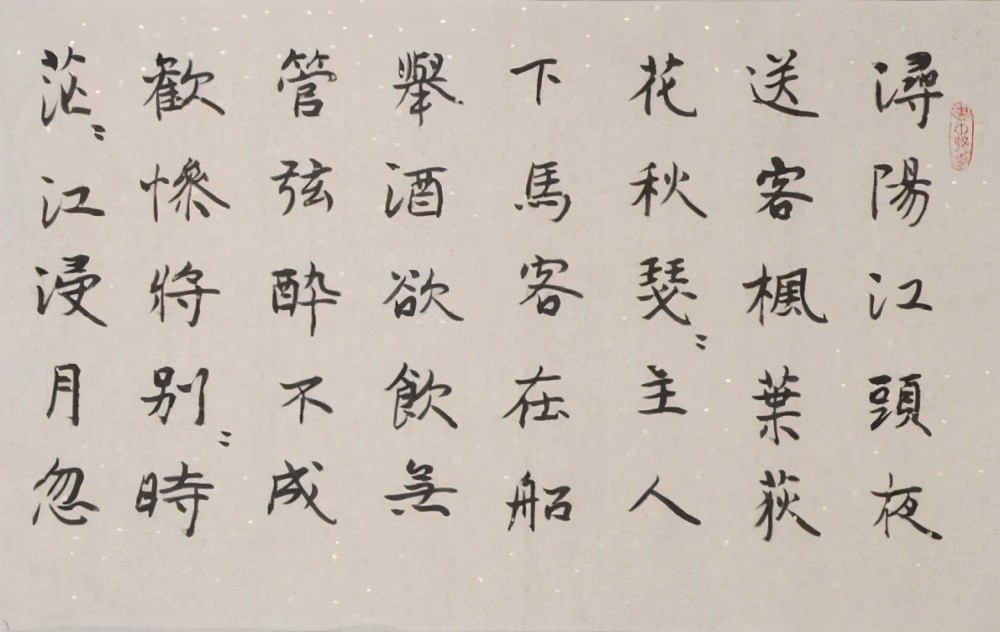 潯陽江頭夜
送客楓葉荻
花秋瑟〻主人
下馬客在船
舉酒欲飲無
管弦醉不成
歡慘將别〻時
茫〻江浸月忽